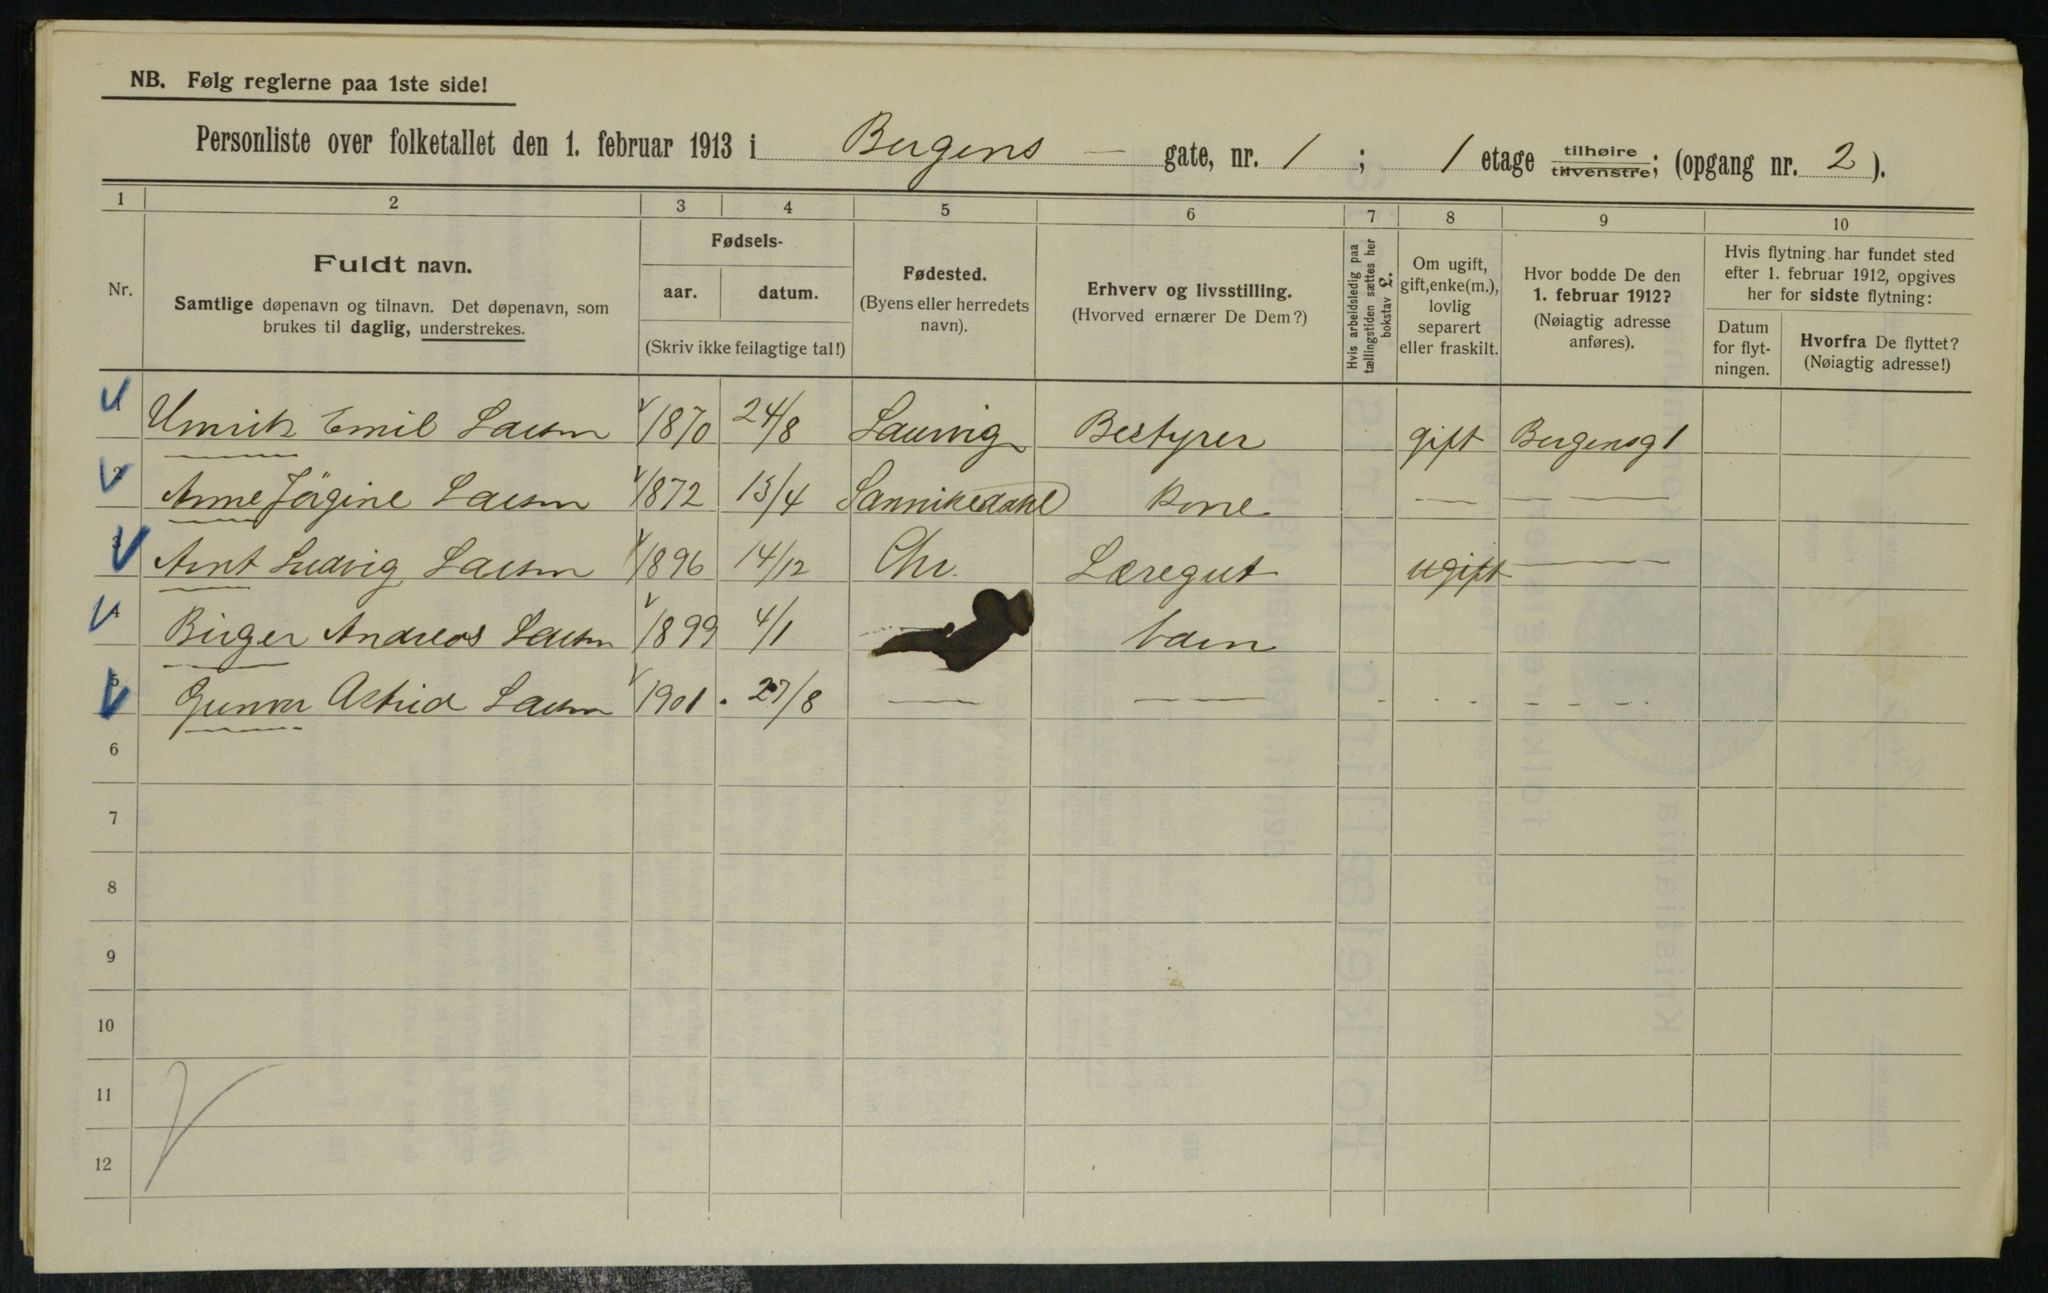 NB. Følg reglerne paa 1ste side!
Personliste over folketallet den 1. februar 1913 i Bergens — gate, nr. 1; 1 etage tilhøire tilvenstre; (opgang nr. 2).
1 2 3 4 5 6 7 8 9 10
Nr.
Fuldt navn.
Samtlige døpenavn og tilnavn. Det døpenavn, som
brukes til daglig, understrekes.
Fødsels-
aar. datum.
(Skriv ikke feilagtige tal!)
Fødested.
(Byens eller herredets
navn).
Erhverv og livsstilling.
(Hvorved ernærer De Dem?)
Hvis arbeidsledig paa
tællingstiden sættes her
bokstav L.
Om ugift,
gift, enke(m.),
lovlig
separert
eller fraskilt.
Hvor bodde De den
1. februar 1912?
(Nøiagtig adresse
anføres).
Hvis flytning har fundet sted
efter 1. februar 1912, opgives
her for sidste flytning:
Datum
for flyt-
ningen.
Hvorfra De flyttet?
(Nøiagtig adresse!)
1 Emil Larsen 1870 24/8 Laurvig Bestyrer gift Bergensg 1
2 Anne Jörgine Larsen 1872 13/4 Sannikedahl Kone — — — —
3 Arnt Ludvig Larsen 1896 14/12 Chr. Læregut ugift —
4 Birger Andreas Larsen 1899 4/1 barn
5 Gunvor Astrid Larsen 1901 27/8 — — — - - - - - -
6
7
8
9
10
11
12